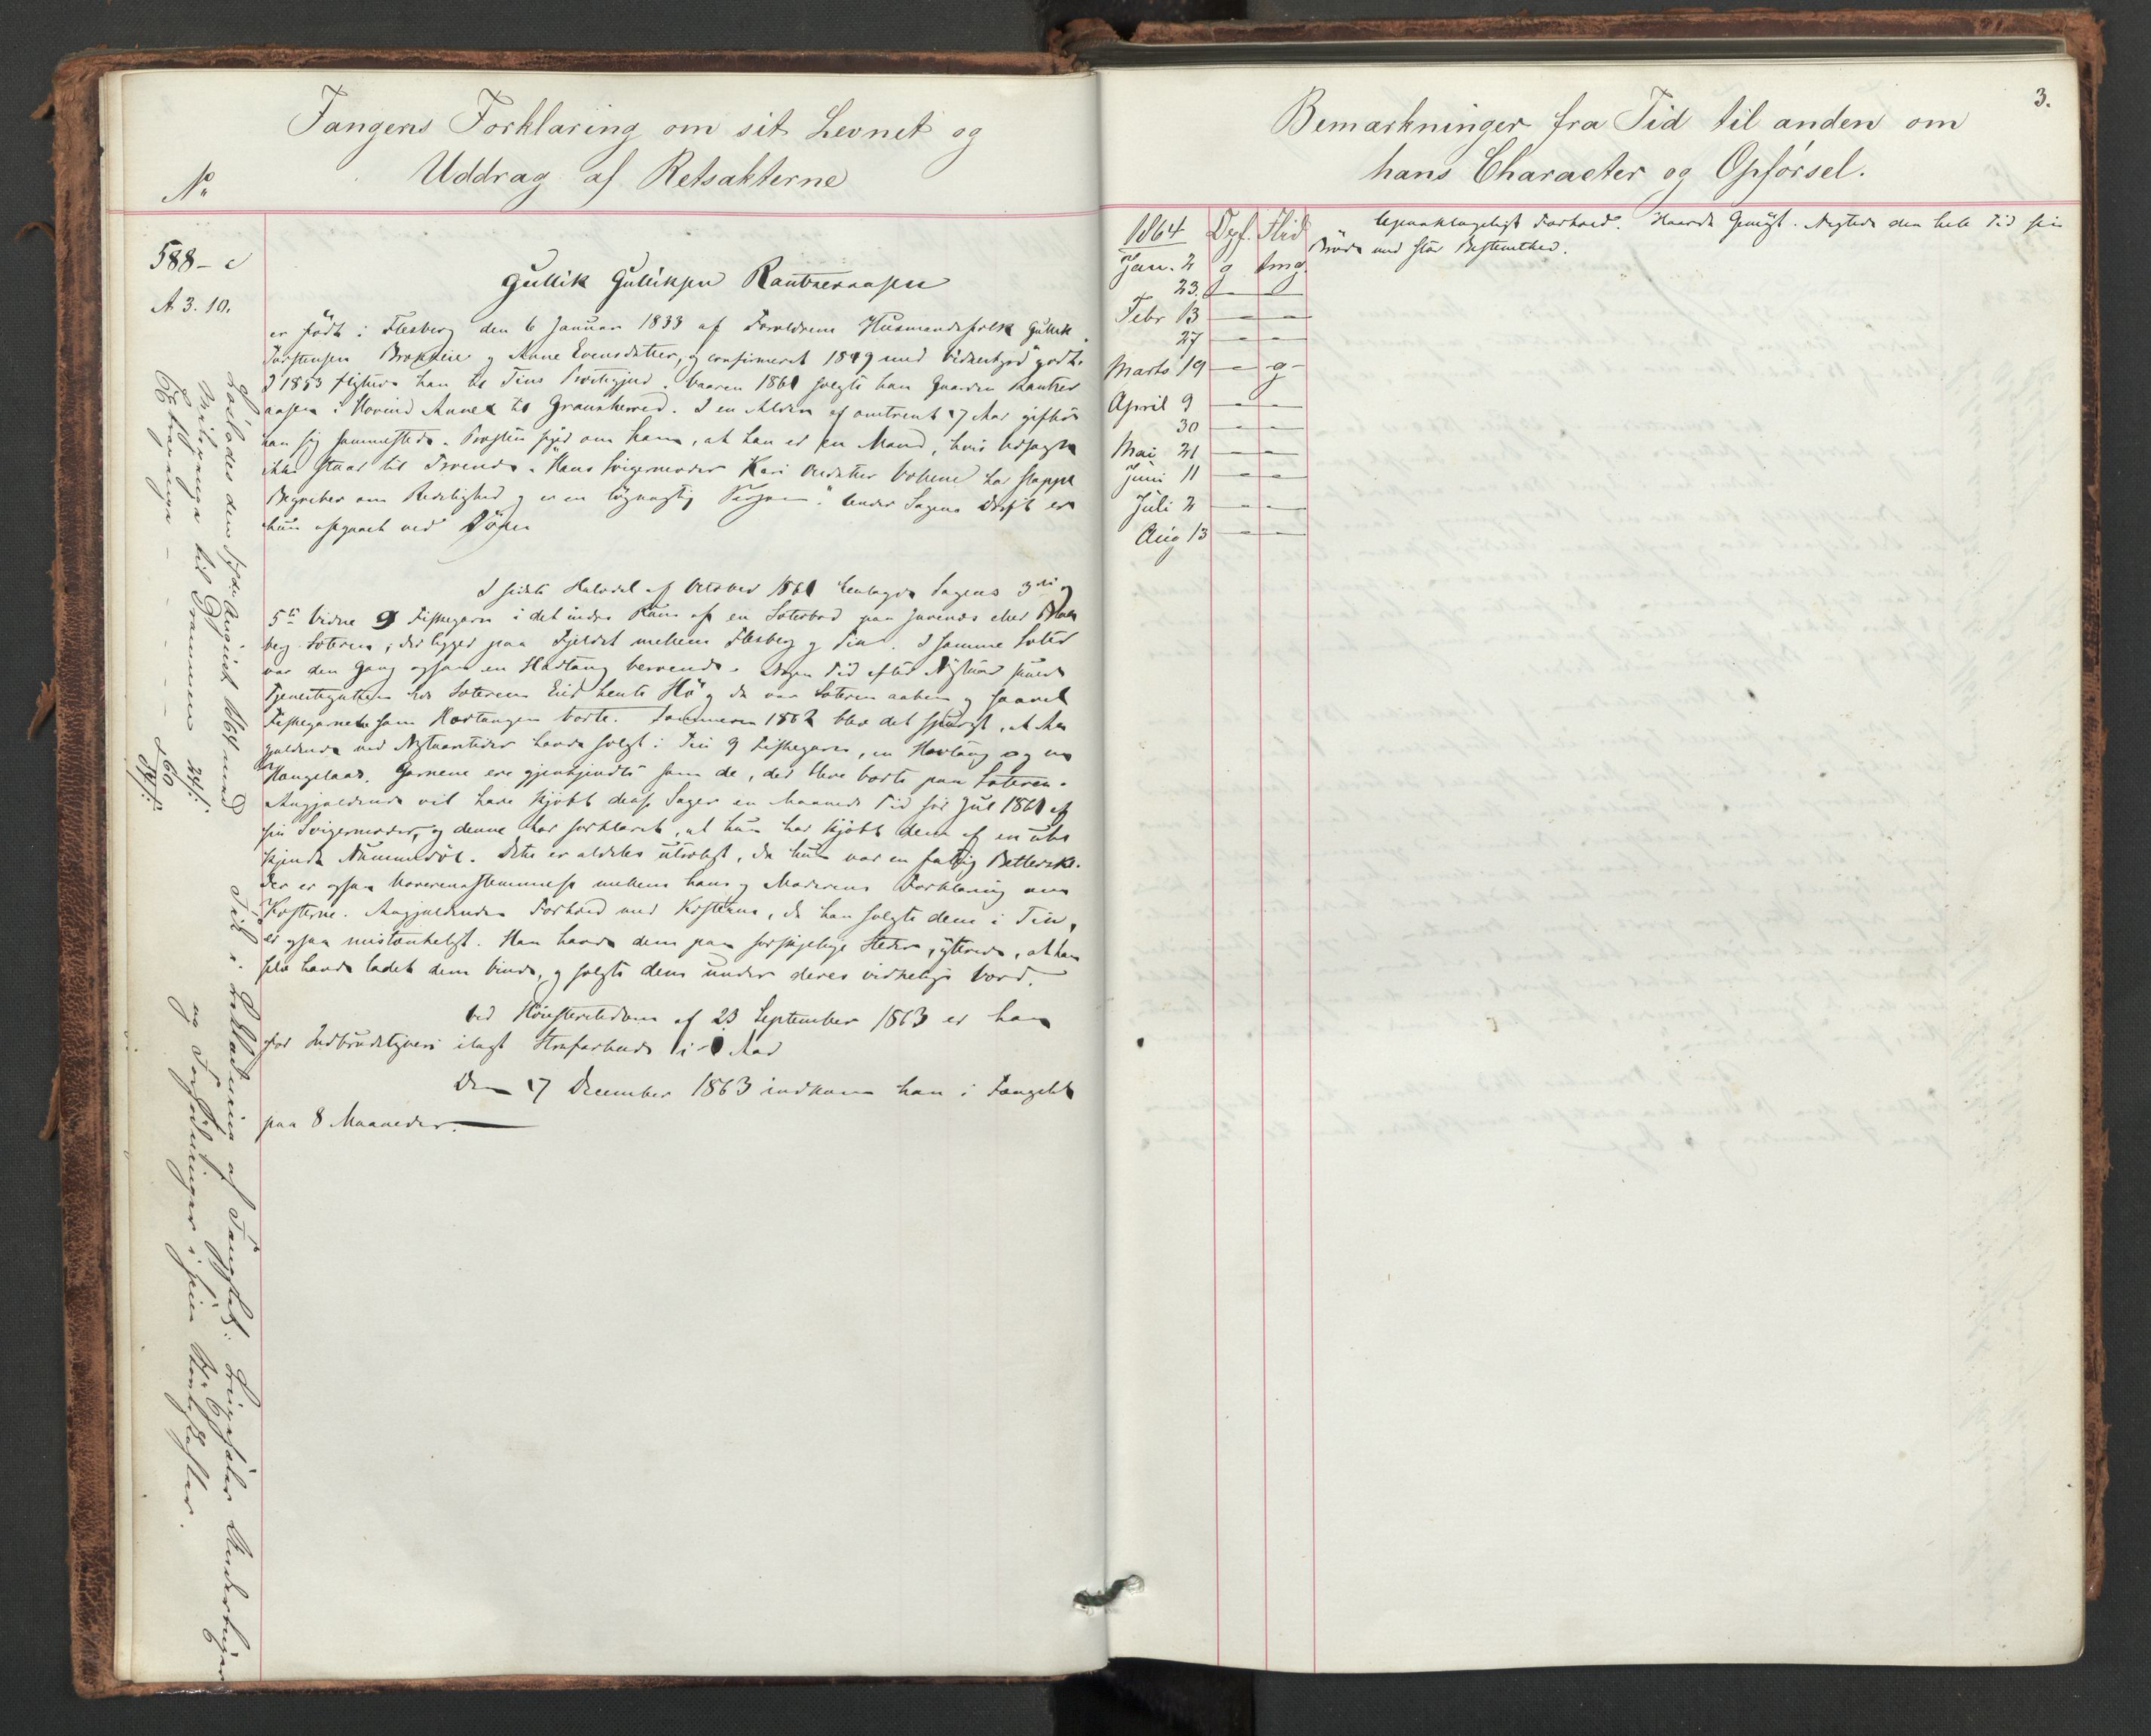 Fangens Forklaring om sit Levnet og
Uddrag af Retsakterne
No
588 - c
A. 3. 10.
Gullik Gulliksen Kantseraasen
er född i Flesberg den 6 Januar 1833 af Forældrene Husmandsfolk Gullik
Torstensen Brokkeie og Anne Evensdatter, og confirmeret 1849 med Vidnesbyrd "godt".
I 1853 flyttede han til Tins Præstegjeld. Vaaren 1861 solgte han Gaarden Kantser
aasen i Hovind Annex til Gransherred. I en Alder af omtrent 17 Aar giftede
han sig sammesteds. Presten siger om ham, at han er en Mand, hvis Udsagn
ikke staar til Troende. Hans Svigermoder Kari Olsdatter har slappe
Begreber om Redelighed og er en lögnagtig Person." Under Sagens Drift er
hun afgaaet ved Döden
I sidste Halvdel af October 1861 henlagde Sagens 3die og
5te Vidne 9 Fiskegarn i det indre Rum af en Sæterbod paa eller
berg Sæteren, der ligger paa Fjeldet mellem Flesberg og Tin. I samme Sæter
var den Gang ogsaa en Hudtang beroende. Nogen Tid efter Nytaar skulde
Tjenestegutten hos Sæterens Eier hente Hö og da var Sæteren aaben og saavel
Fiskegarnene som Hudtangen borte. Sommeren 1862 blev det spurgt, at An
gjældende ved Nytaarstider havde solgt i Tin 9 Fiskegarn, en Hudtang og en
Hængelaas. Garnene ere gjenkjendte som de, der bleve borte paa Sæteren.
Angjældende vil have kjöbt disse Sager en Maaneds Tid för Jul 1861 af
sin Svigermoder, og denne har forklaret, at hun har kjöbt dem af en ube
kjendt Nummedöl. Dette er aldeles utroligt, da hun var en fattig Betlerske.
Der er ogsaa Uoverensstemmelse mellem hans og Moderens Forklaring om
Kosterne. Angjældendes Forhold med Kosterne, da han solgte dem i Tin,
er ogsaa mistænkeligt. Han havde dem paa forskjellige Steder, yttrede, at han
selv havde ladet dem binde, og solgte dem under deres virkelige Værd.
Ved Höiesteretsdom af 23 September 1863 er han
for Indbrudstyveri ilagt Strafarbeide i 1 Aar
Den 17 December 1863 indkom han i Fængslet
paa 8 Maaneder.
Löslades den August 1864 med
til Drammen 24 s:
Extrapenge - - - - 60
84 s:
Til i Iklædning af Fangstöi:
og Fordringer i sine
Bemærkninger fra Tid til anden om
hans Character og Opförsel.
3.
1864 Opf. Flid
Jan. 2 g tmg.
23. — —
Febr 13 — —
27 — —
Marts 19 — g
April 9 — —
30 — —
Mai 21 — —
Juni 11 — —
Juli 2 — —
Aug 13 — —
Upaaklageligt Forhold. Haardt Gemyt. Negtede den hele Tid sin
Bröde med stor Bestemthed.